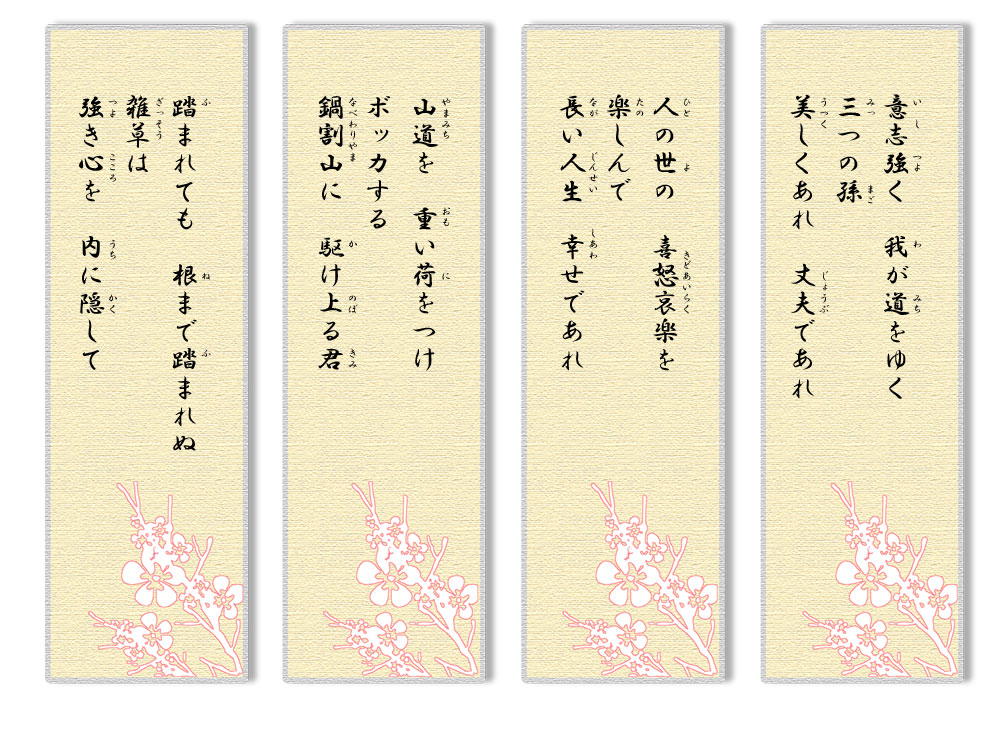 意志強く　我が道をゆく
三つの孫
美しくあれ　丈夫であれ
人の世の　喜怒哀楽を
楽しんで
長い人生　幸せであれ
山道を　重い荷をつけ
ボッカする
鍋割山に　駆け上る君
踏まれても　根まで踏まれぬ
雑草は
強き心を　内に隠して